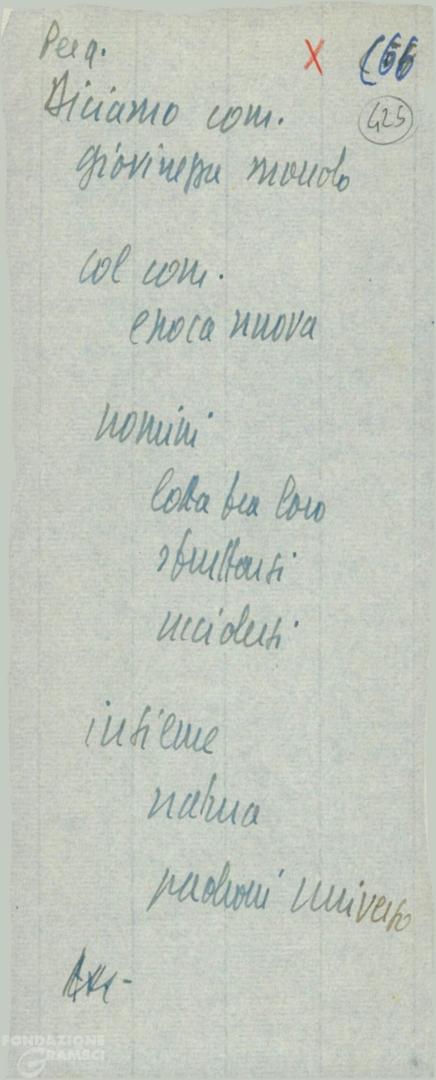 Per q.
X (66
Diciamo com. 425
giovinezza mondo
col com.
epoca nuova
uomini
lotta tra loro
sfruttarsi
uccidersi
insieme
natura
padroni universo
FONDAZIONE
GRAMSCI